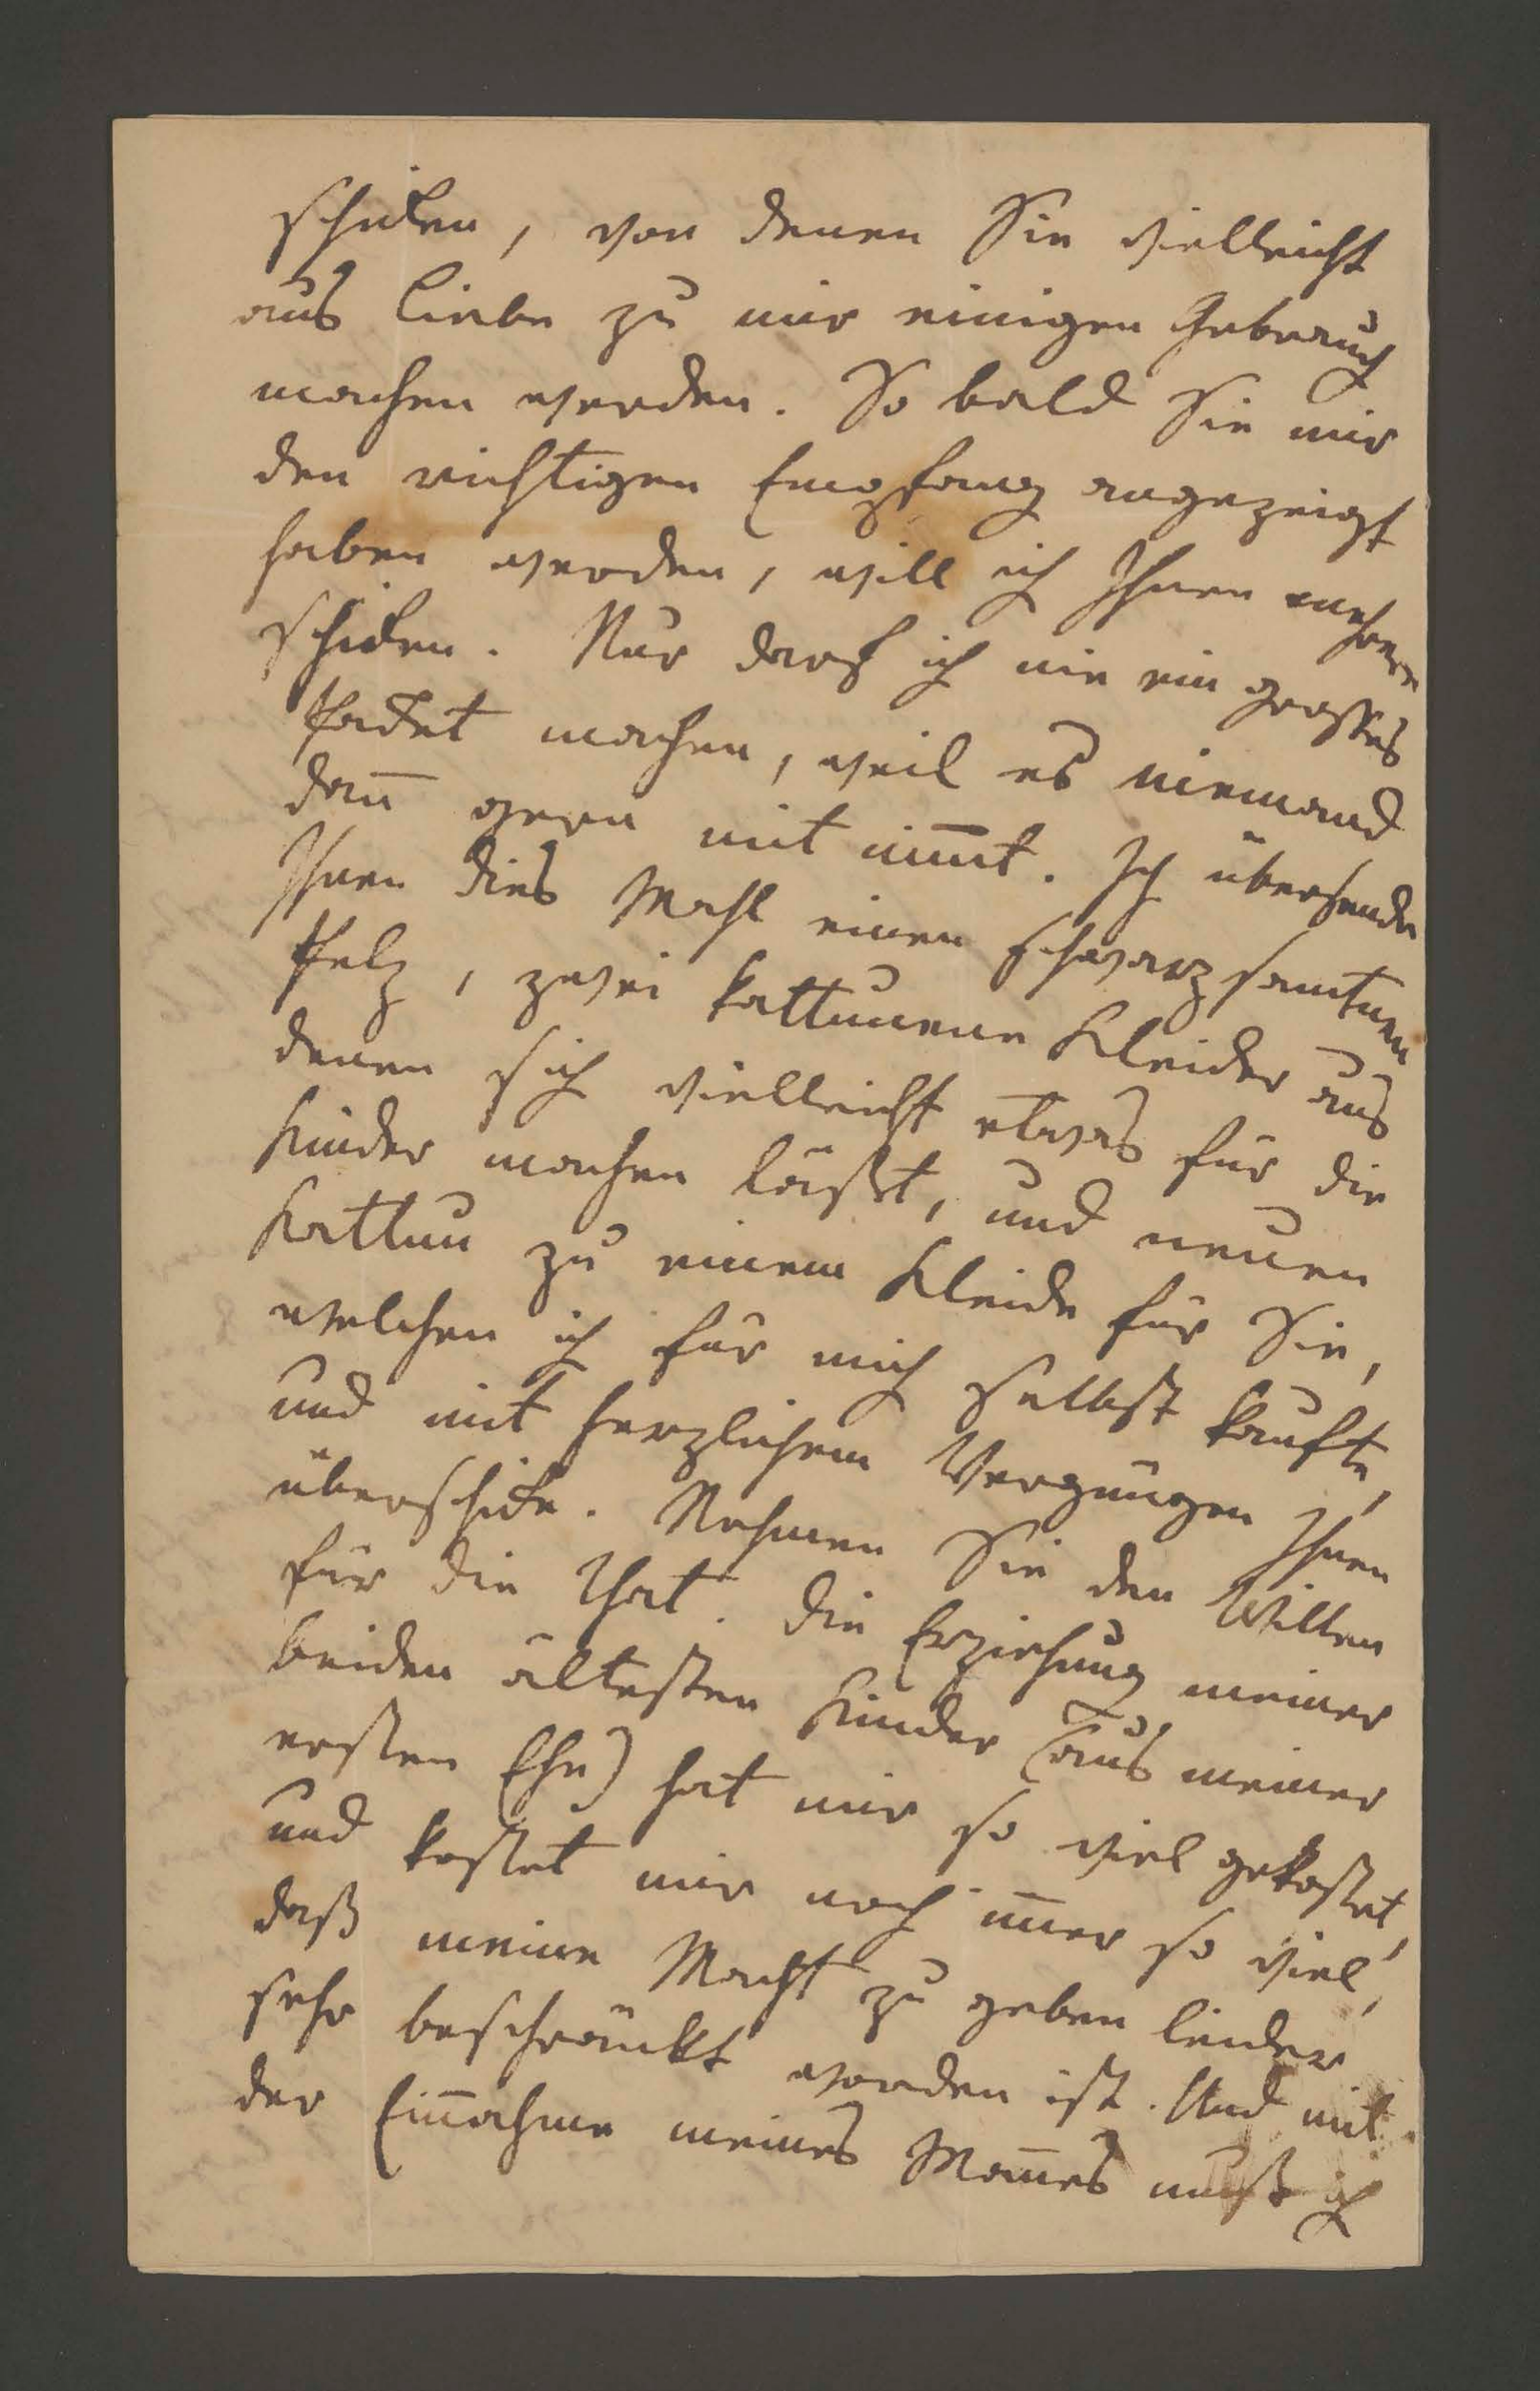 schiken, von denen Sie vielleicht
aus Liebe zu mir einigen Gebrauch
machen werden. So bald Sie mir
den richtigen Empfang angezeigt
haben werden, will ich Ihnen mehrere
schiken. Nur darf ich nie ein grosses
Packet machen, weil es niemand
dan̄ gern mit nim̄t. Ich übersende
Ihnen dies Mahl einen schwarz samtnen
Pelz, zwei kattunene Kleider aus
denen sich vielleicht etwas für die
Kinder machen läßt, und neuen
Kattun zu einem Kleide für Sie,
welchen ich für mich selbst kaufte,
und mit herzlichem Vergnügen Ihnen
überschicke. Nehmen Sie den Willen
für die That. Die Erziehung meiner
beiden ältesten Kinder (aus meiner
ersten Ehe) hat mir so viel gekostet,
und kostet mir noch im̄er so viel,
daß meine Macht zu geben leider
sehr beschränkt worden ist. Und mit
der Ein̄ahme meines Man̄es muß ich